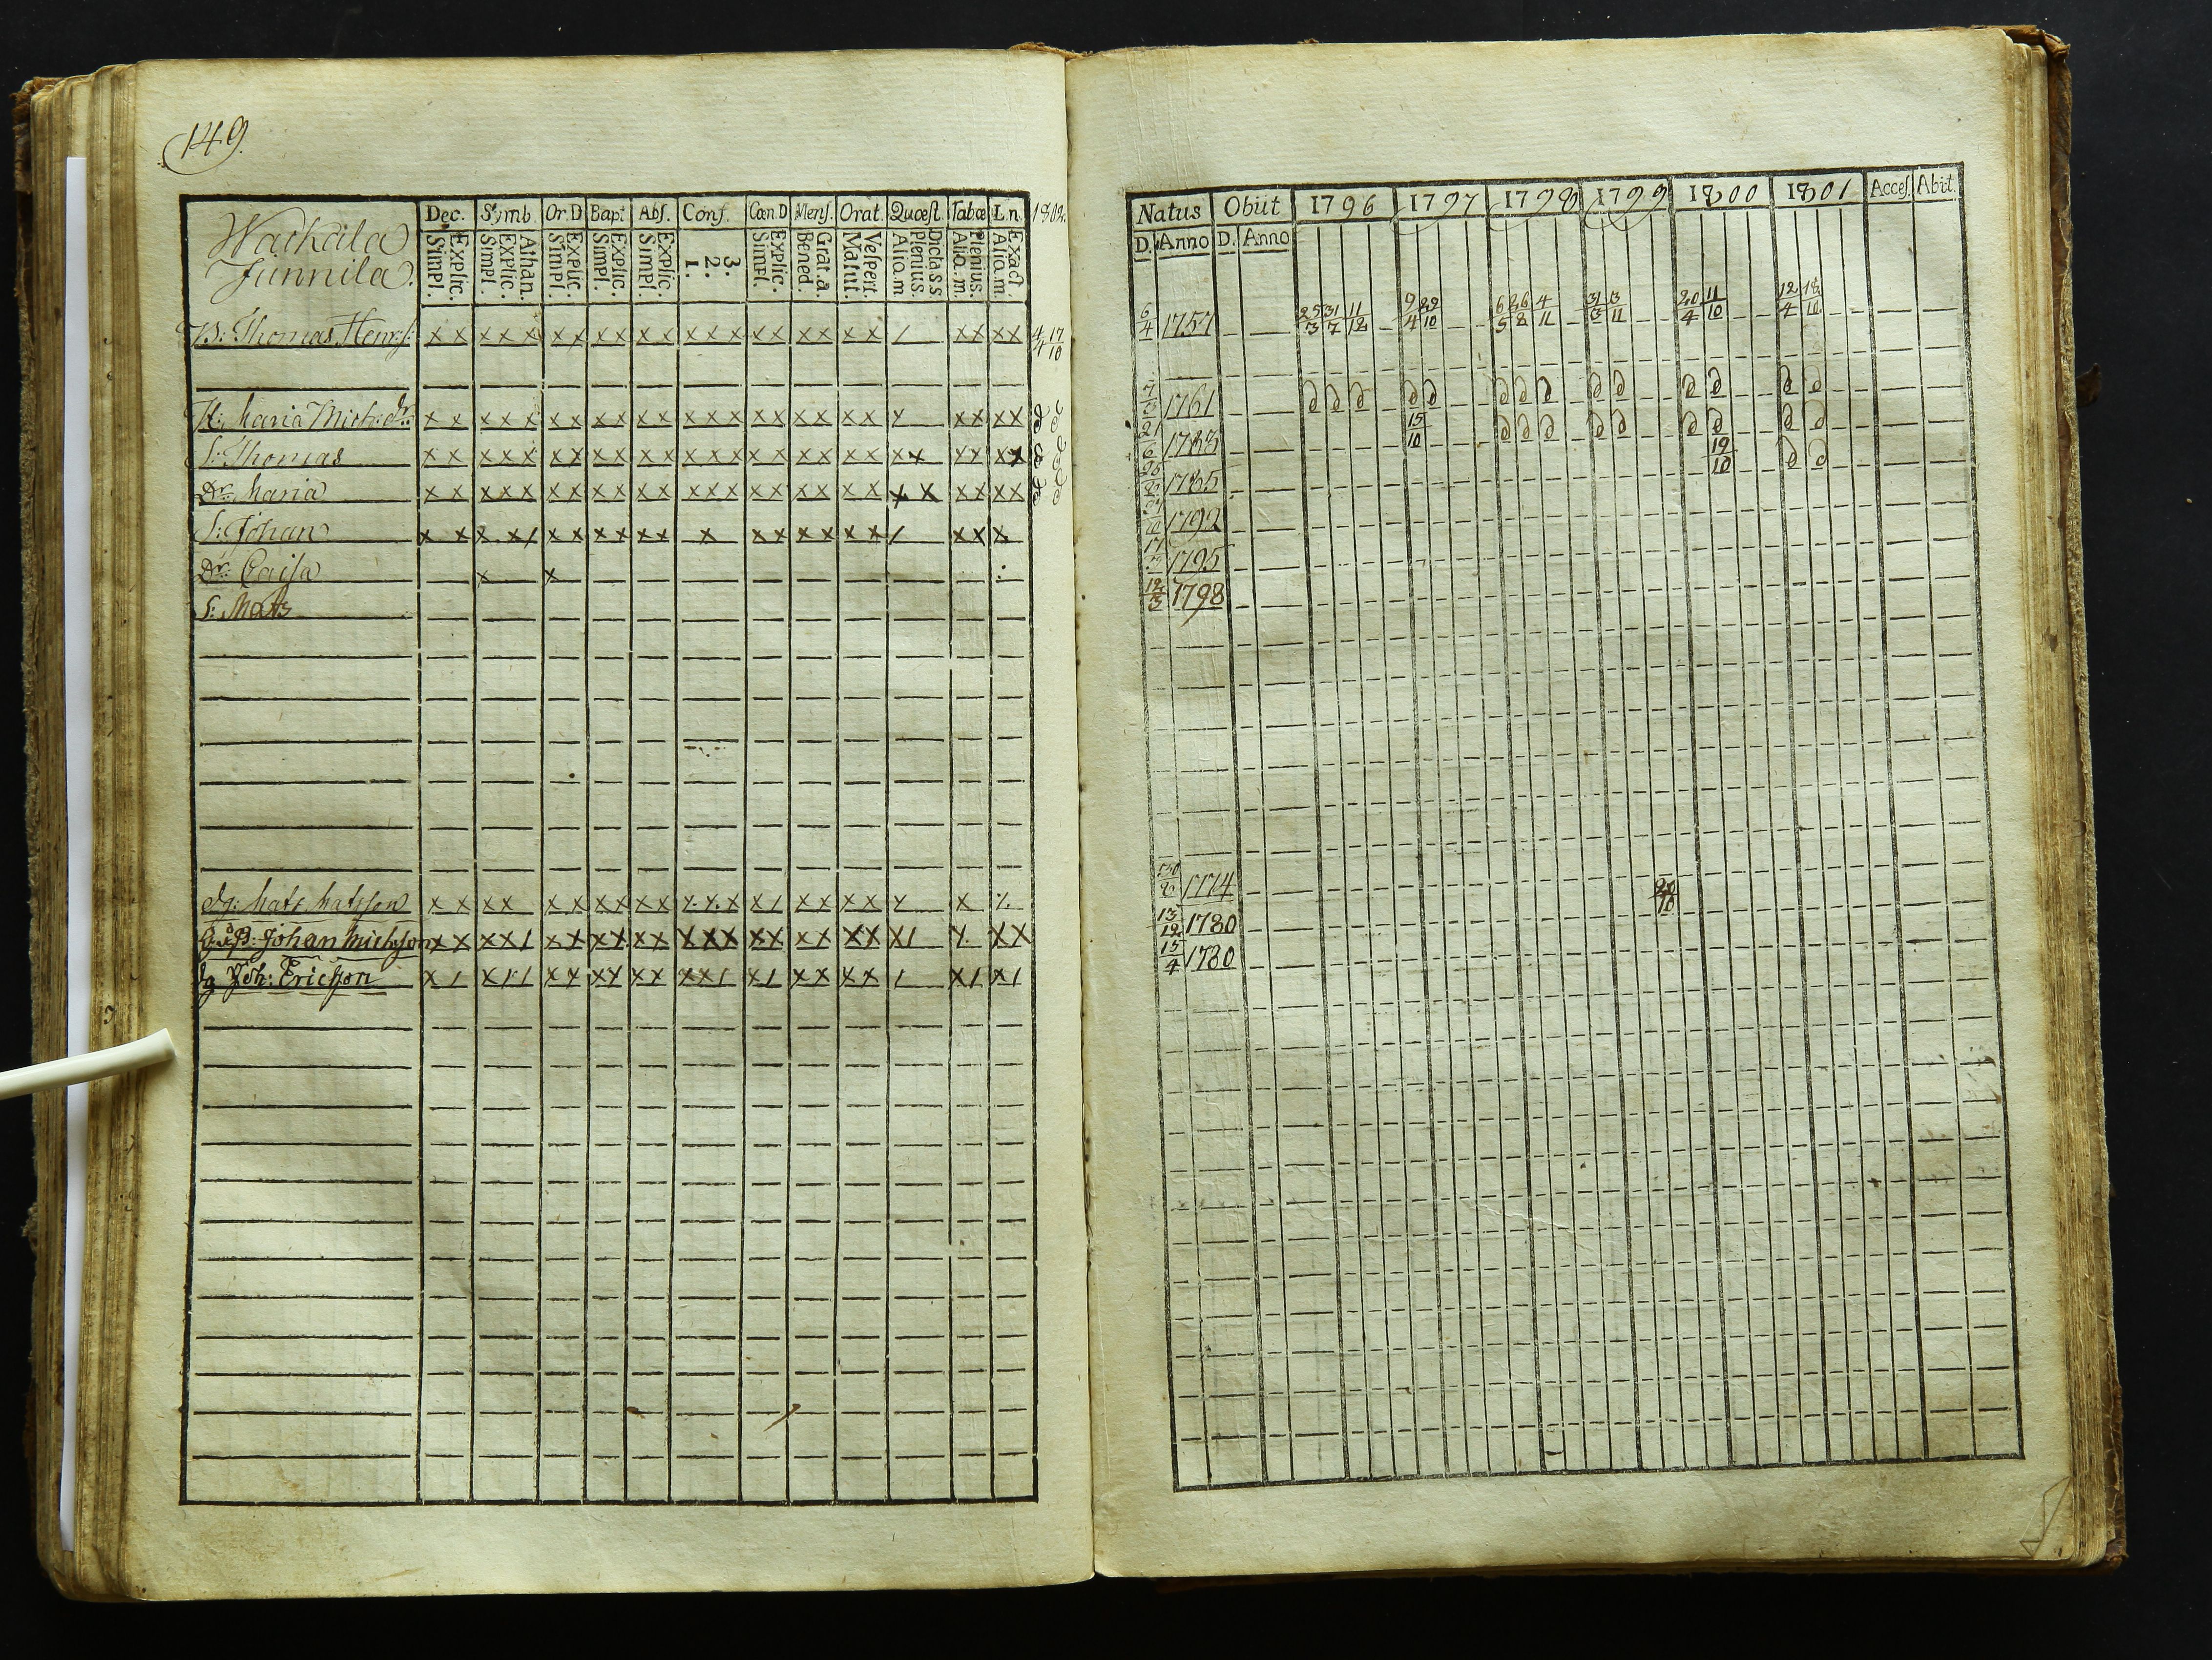 149.
Wachala
Junnila.
Dec. Symb. Or.D Bapt Abs. Conf. Can.D Mens. Orat. Quæst Tabæ L.n. 1802.
Explic. Simpl. Athan. Explic. Simpl. Explic. Simpl. Explic. Simpl. Explic. Simpl. 3. 2. 1. Explic. Simpl. Grat.a. Bened. Vespert. Matut. Dicta S.S Plenius. Aliq.m Plenius. Aliq.m. Exact. Aliq.m.
B: Thomas Henrs: x x x x x x x x x x x x x x x x x x x x / x x x x 4/4 17/10
H: Maria Mich: dr: x x x x x x x x x x x x x x x x x x x x x x x x x
S: Thomas x x x x x x x x x x x x x x x x x x x x x x x x x x
Dr: Maria x x x x x x x x x x x x x x x x x x x x x x x x x x
S: Johan x x x x / x x x x x x x x x x x x x / x x x
Dr: Caisa x x
S: Mats
dg: Mats Matsson x x x x x x x x x x x x x / x x x x x x
Johan Michelsson x x x x / x x x x x x x x x x x x x x x x / x x x
dg Joh: Ericsson x / x / / x x x x x x x x / x / x x x x / x / x /
Natus Obiit 1796 1797 1798 1799 1800 1801 Acces. Abit.
D. Anno D. Anno
6/4 1757 25/3 31/7 11/12 9/4 29/10 6/5 26/8 4/11 31/3 3/11 20/4 11/10 12/4 18/10
1761
15/10
19/10
1792
1795
12/3 1798
1774
13/12 1780
15/4 1780